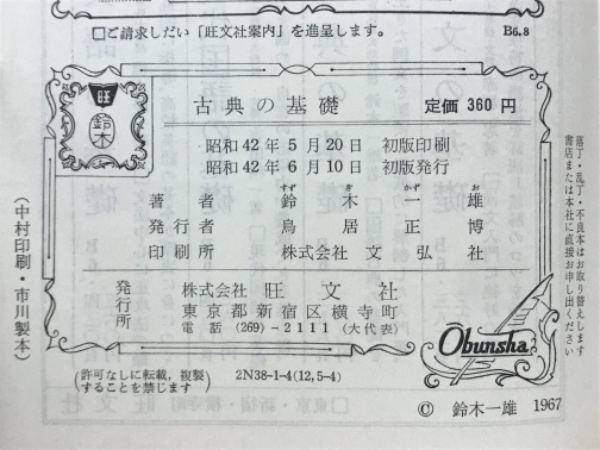 □ご請求しだい「旺文社案内」を進呈します。 B6.8
旺
鈴木
古典の基礎 定価 360 円
昭和 42 年 5 月 20 日 初版印刷
昭和 42 年 6 月 10 日 初版発行
すず き かず お
著者 鈴木一雄
発行者 鳥居正博
印刷所 株式会社 文弘社
発行所
株式会社 旺文社
東京都新宿区横寺町
電話 (269)-2111 (大代表)
Obunsha
(許可なしに転載, 複製
することを禁じます)
2N38-1-4(12,5-4)
© 鈴木一雄 1967
(中村印刷・市川製本)
落丁・乱丁・不良本はお取り替えします
書店または本社に直接お申し出ください